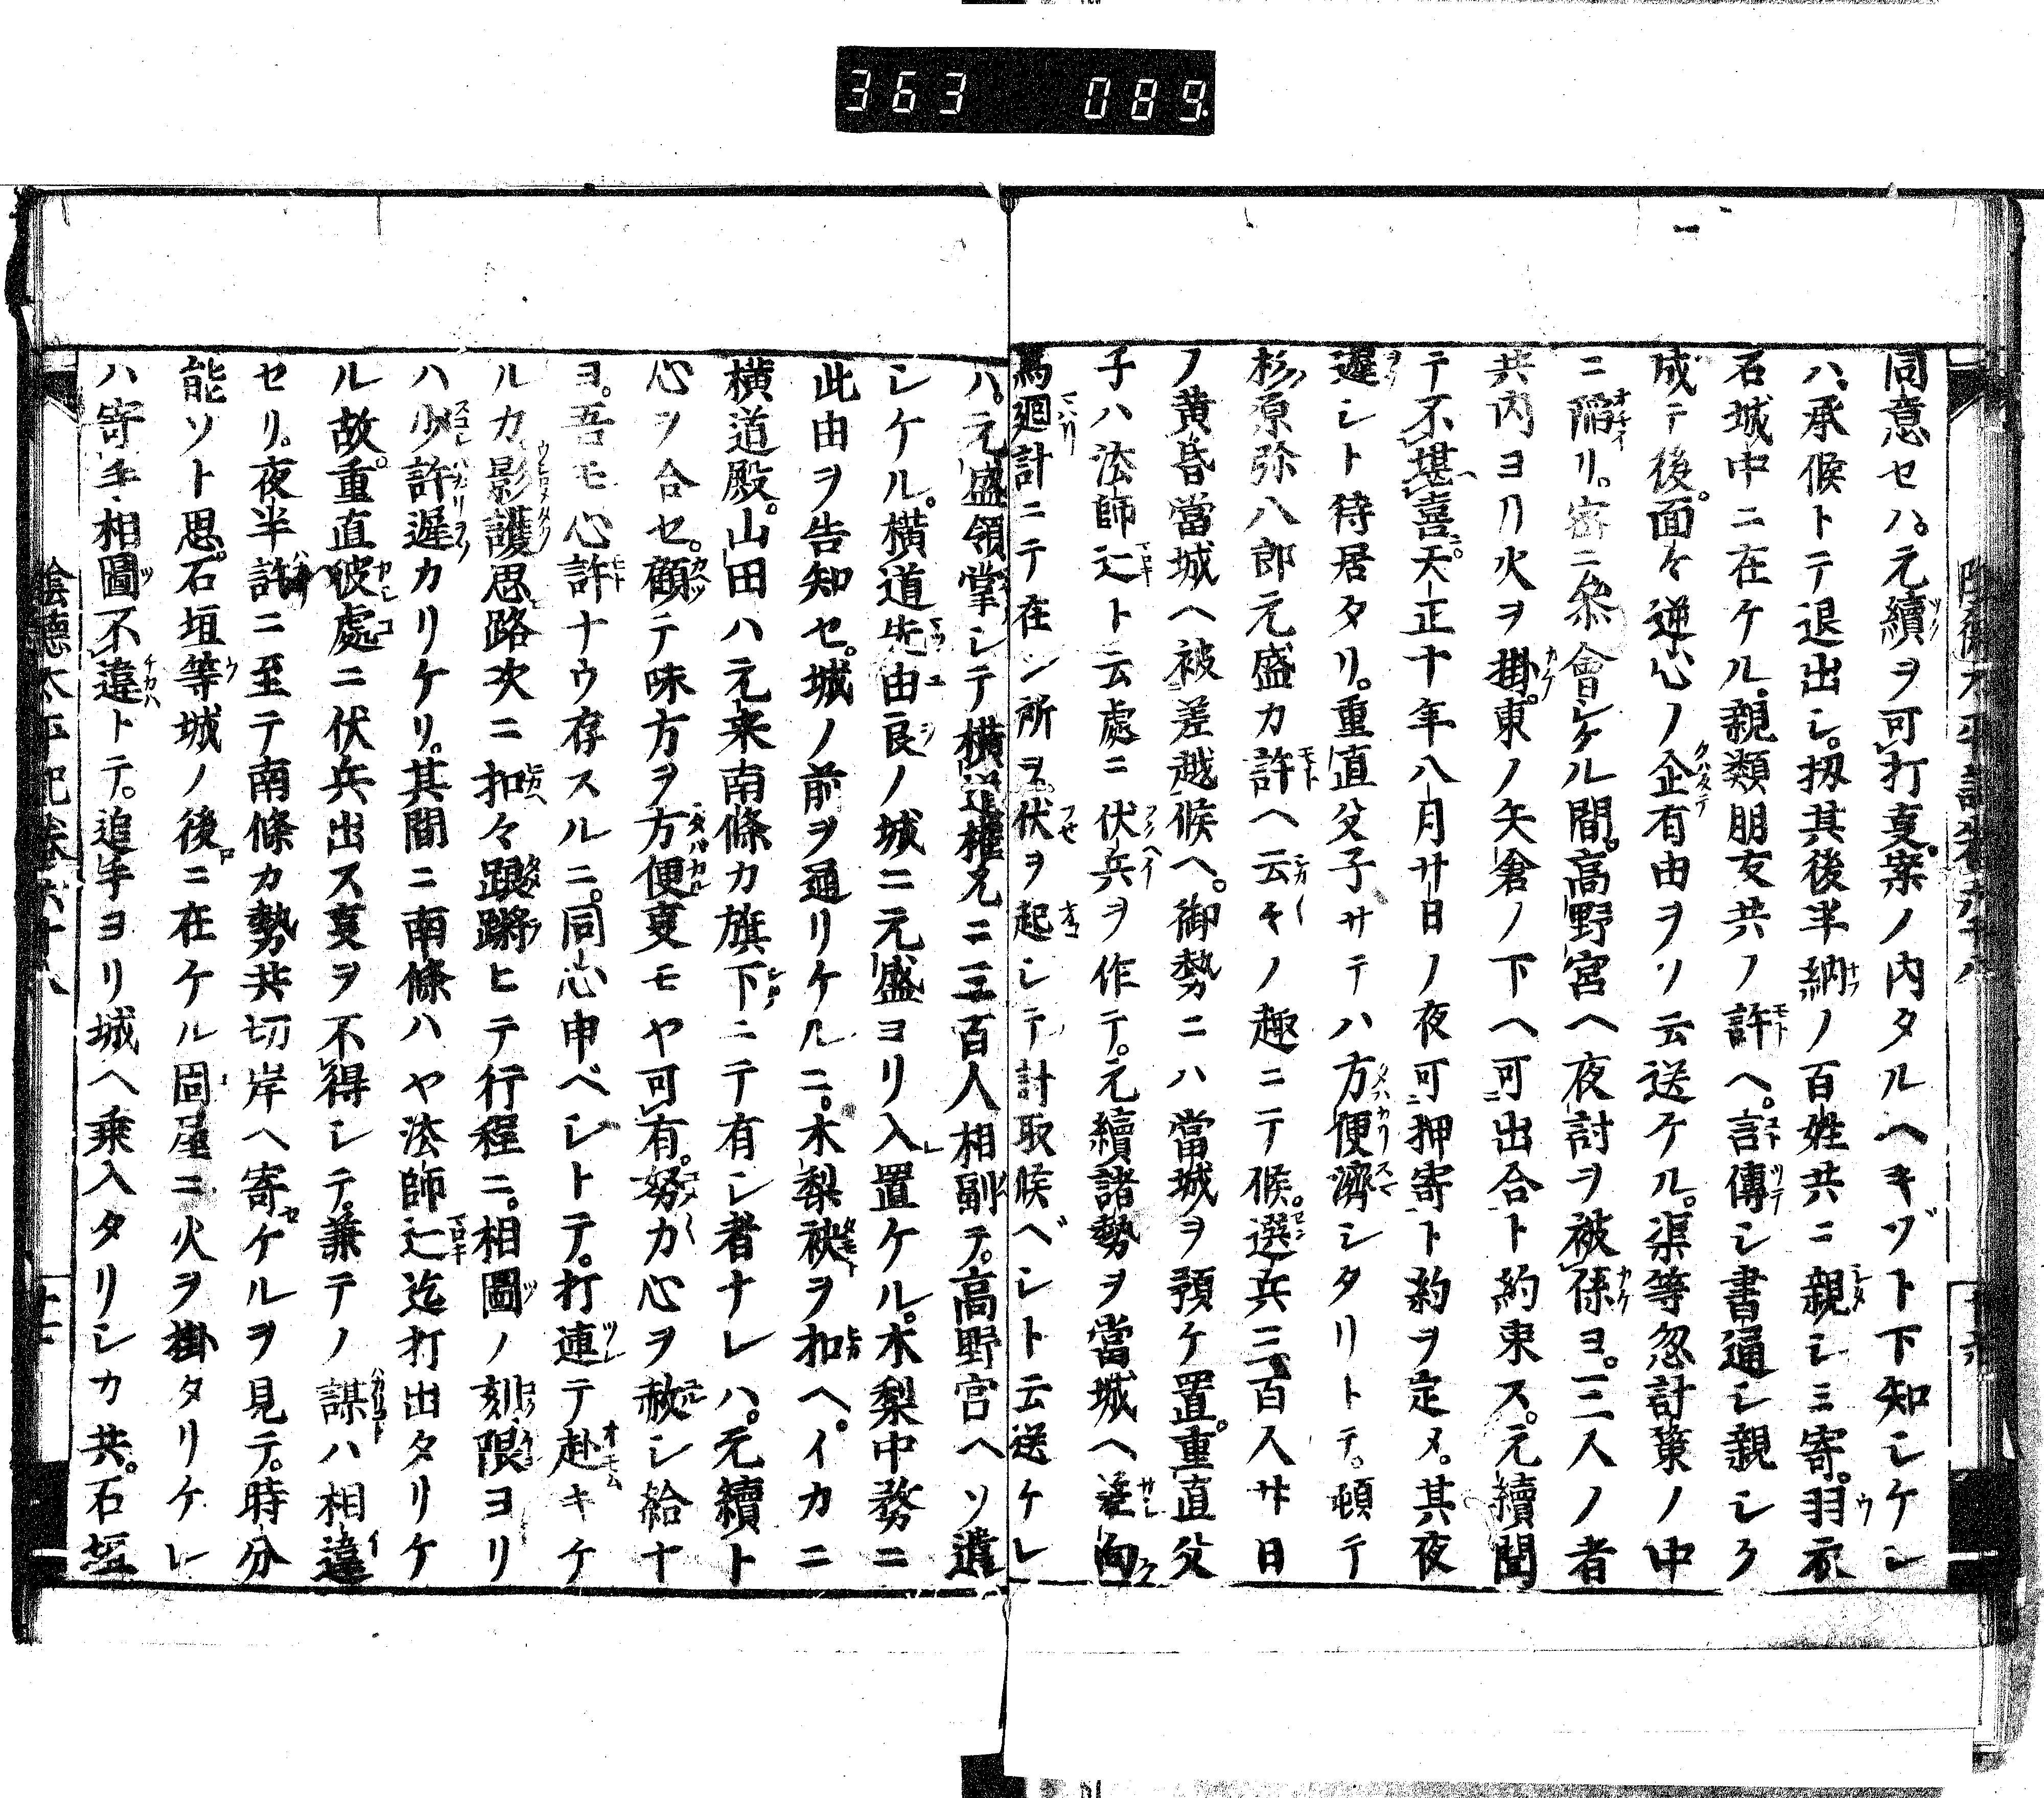 363 089
同意セハ。元續ヲ可打亊案ノ内タルヘキゾト下知シケレ
ハ、承候トテ退出シ。扨其後半納ノ百姓共ニ親シミ寄。羽衣
石城中ニ在ケル。親類朋友共ノ許ヘ。言傳シ書通シ親シク
成テ後。面々逆心ノ企有由ヲソ云送ケル。渠等忽計策ノ中
ニ陷リ。密ニ參會シケル間。高野宮ヘ夜討ヲ被係ヨ。三人ノ者
共内ヨリ火ヲ掛。東ノ矢倉ノ下ヘ可出合ト約束ス。元續聞
テ不堪喜。天正十年八月廿日ノ夜可押寄ト約ヲ定メ。其夜
遲シト待居タリ。重直父子サテハ方便濟シタリトテ。頓テ
杉原弥八郎元盛カ許ヘ云々ノ趣ニテ候。選兵三百人廿日
ノ黄昏當城ヘ被差越候ヘ。御勢ニハ當城ヲ預ケ置。重直父
子ハ法師辷ト云處ニ伏兵ヲ作テ。元續諸勢ヲ當城ヘ差向
馬廻計ニテ在ン所ヲ。伏ヲ起シテ計取候ベシト云送ケレ
ハ。元盛領掌シテ横道權允ニ三百人相副テ。高野宮ヘソ遣
シケル。横道先由良ノ城ニ元盛ヨリ入置ケル。木梨中務ニ
此由ヲ告知セ。城ノ前ヲ通リケルニ。木梨袂ヲ扣ヘ。イカニ
横道殿。山田ハ元来南條カ旗下ニテ有シ者ナレハ。元續ト
心ヲ合セ。顧テ味方ヲ方便亊モヤ可有。努々心ヲ赦シ給ナ
ヨ。吾モ心許ナウ存スルニ。同心申ベシトテ。打連テ赴キケ
ルカ影護思路次ニ扣々踉蹡ヒテ行程ニ。相圖ノ刻限ヨリ
ハ少許遲カリケリ。其間ニ南條ハヤ法師辷迄打出タリケ
ル故。重直彼處ニ伏兵出ス亊ヲ不得シテ。兼テノ謀ハ相違
セリ。夜半許ニ至テ南條カ勢共切岸ヘ寄ケルヲ見テ。時分
能ソト思。石垣等城ノ後ニ在ケル固屋ニ火ヲ掛タリケレ
ハ寄手相圖不違トテ。追手ヨリ城ヘ乗入タリシカ共。石垣
陰德太平記卷六十八